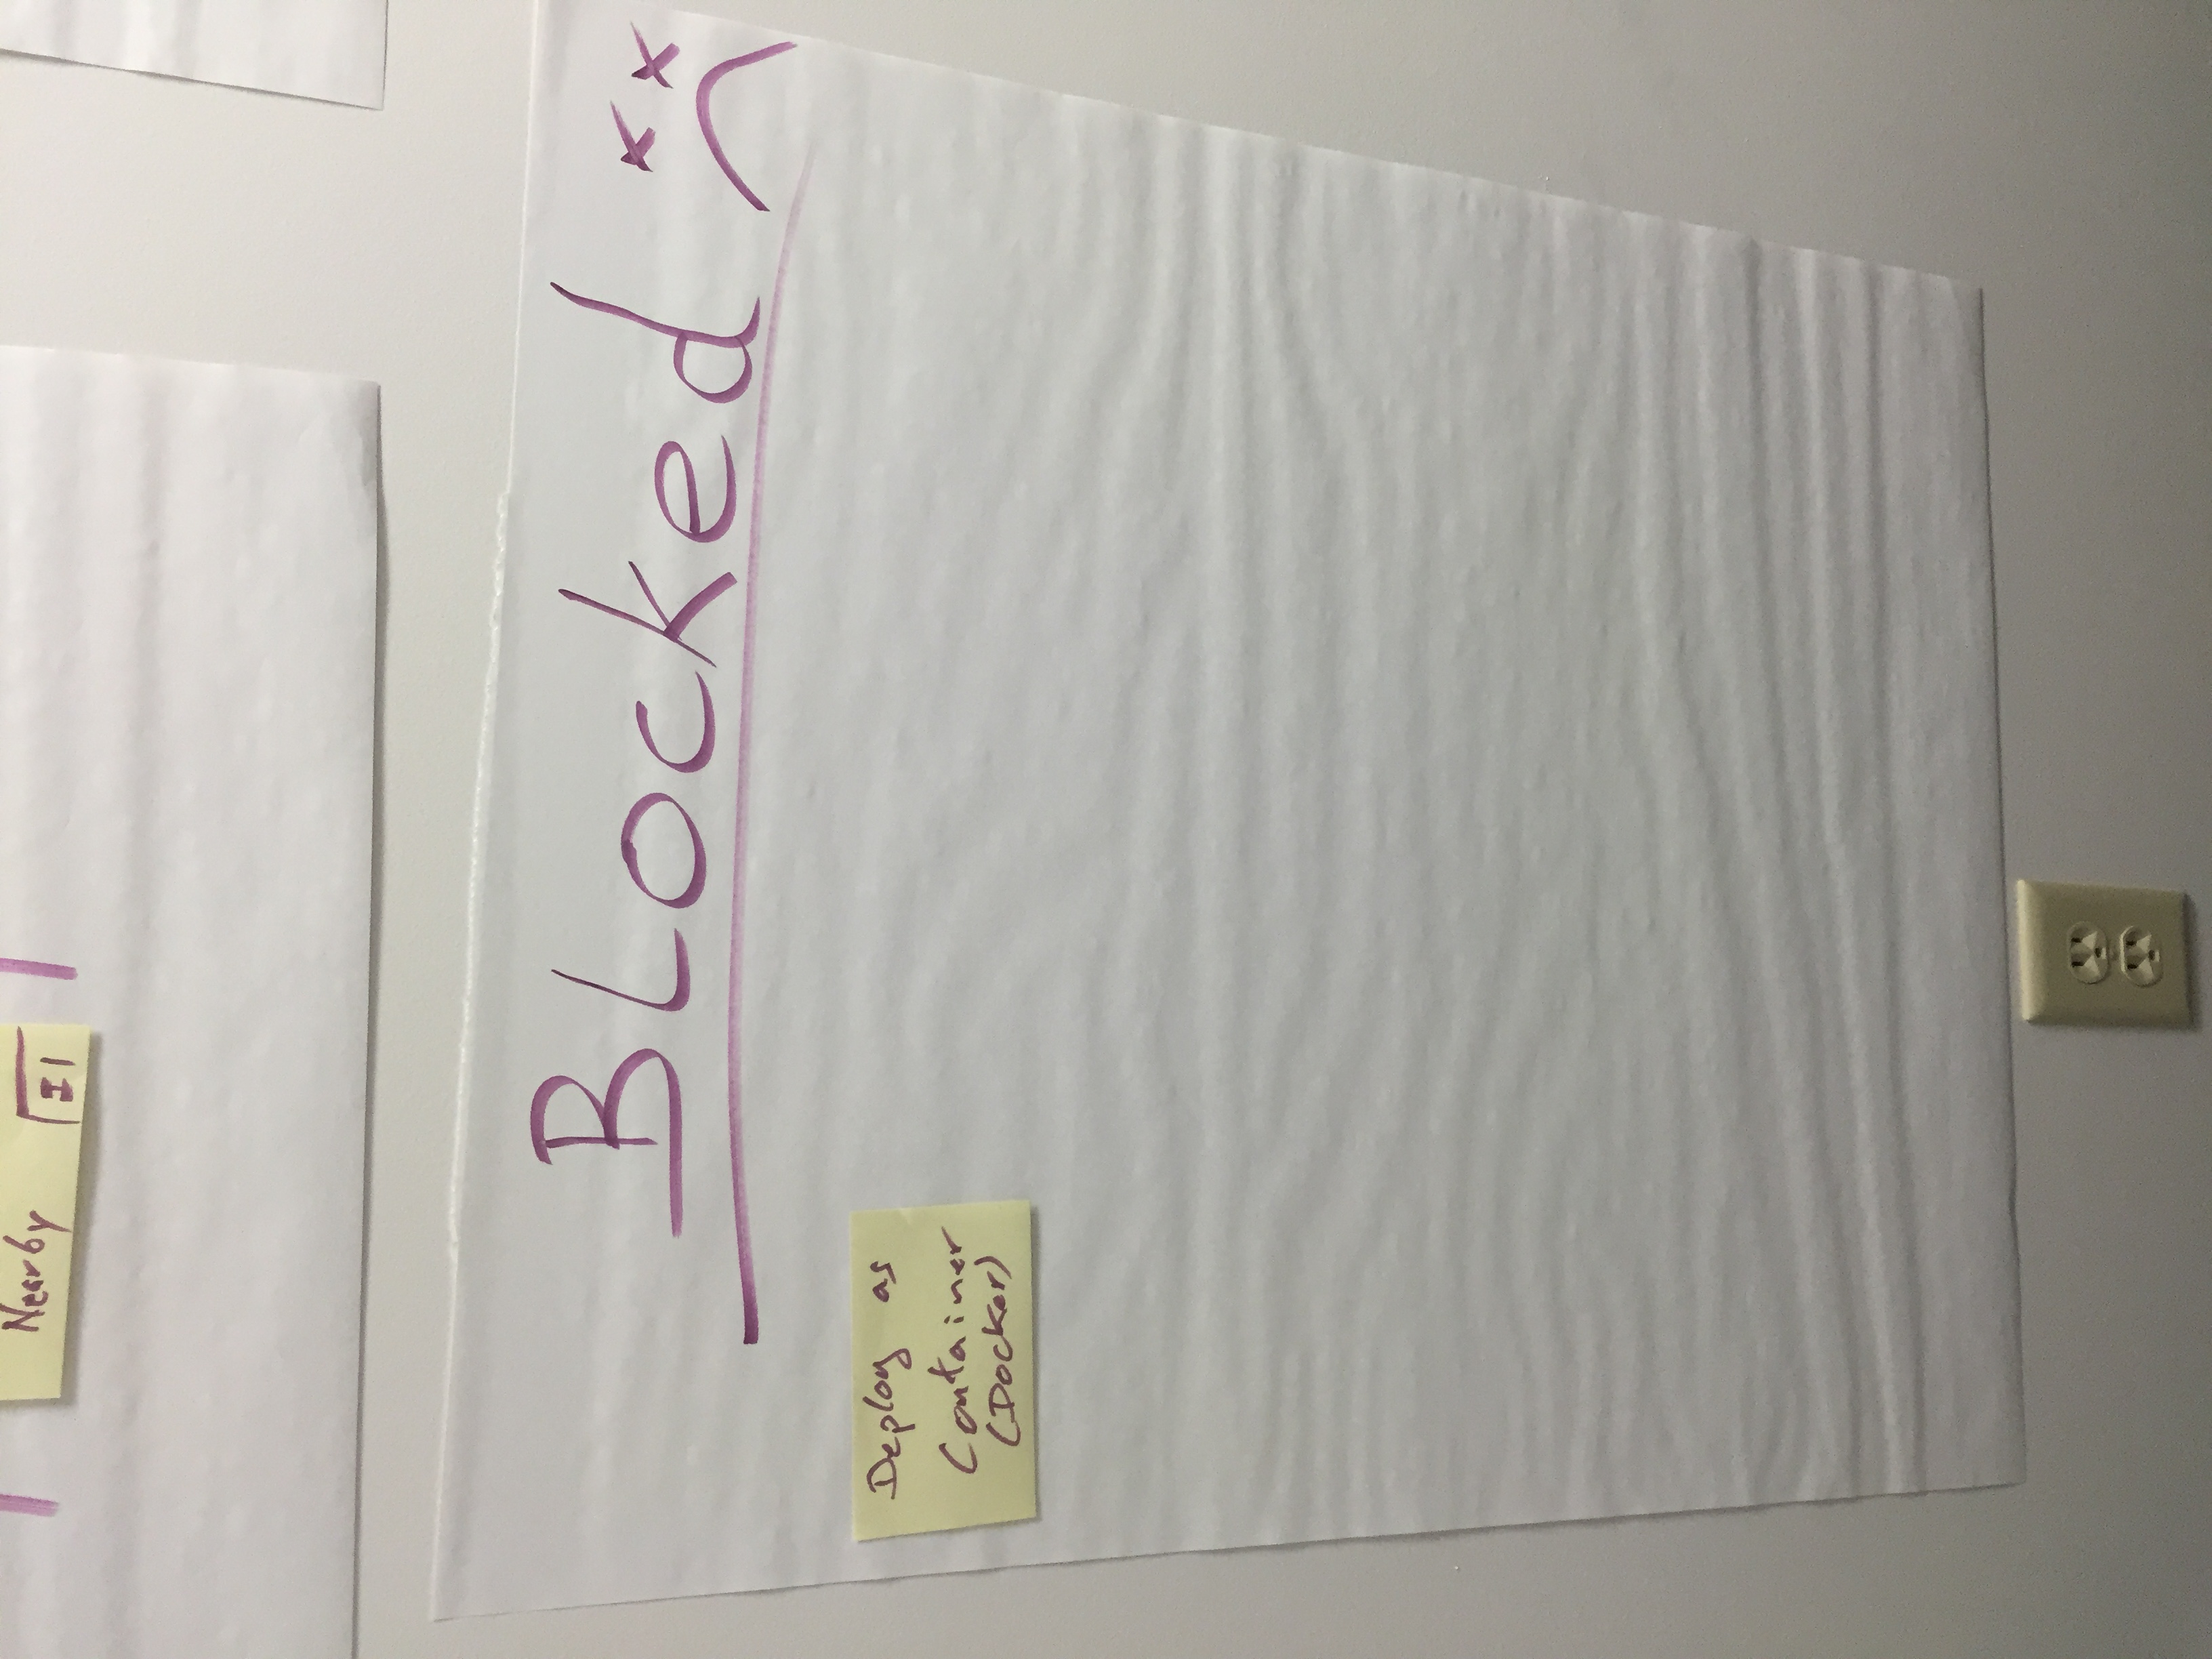 Nearby
I1
BLocked
Deploy as
Container
(Docker)